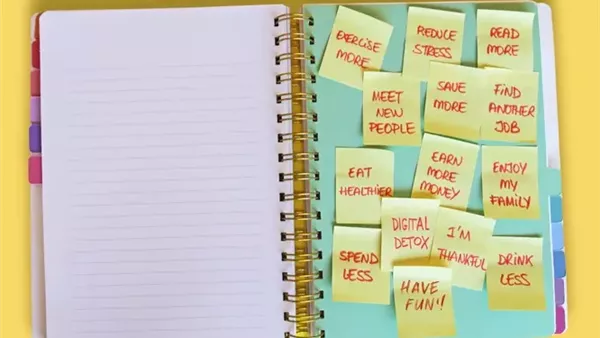 EXERCISE
MORE
REDUCE
STRESS
READ
MORE
MEET
NEW
PEOPLE
SAVE
MORE
FIND
ANOTHER
JOB
EAT
HEALTHIER
EARN
MORE
MONEY
ENJOY
MY
FAMILY
DIGITAL
DETOX
I'M
THANKFUL
SPEND
LESS
DRINK
LESS
HAVE
FUN!